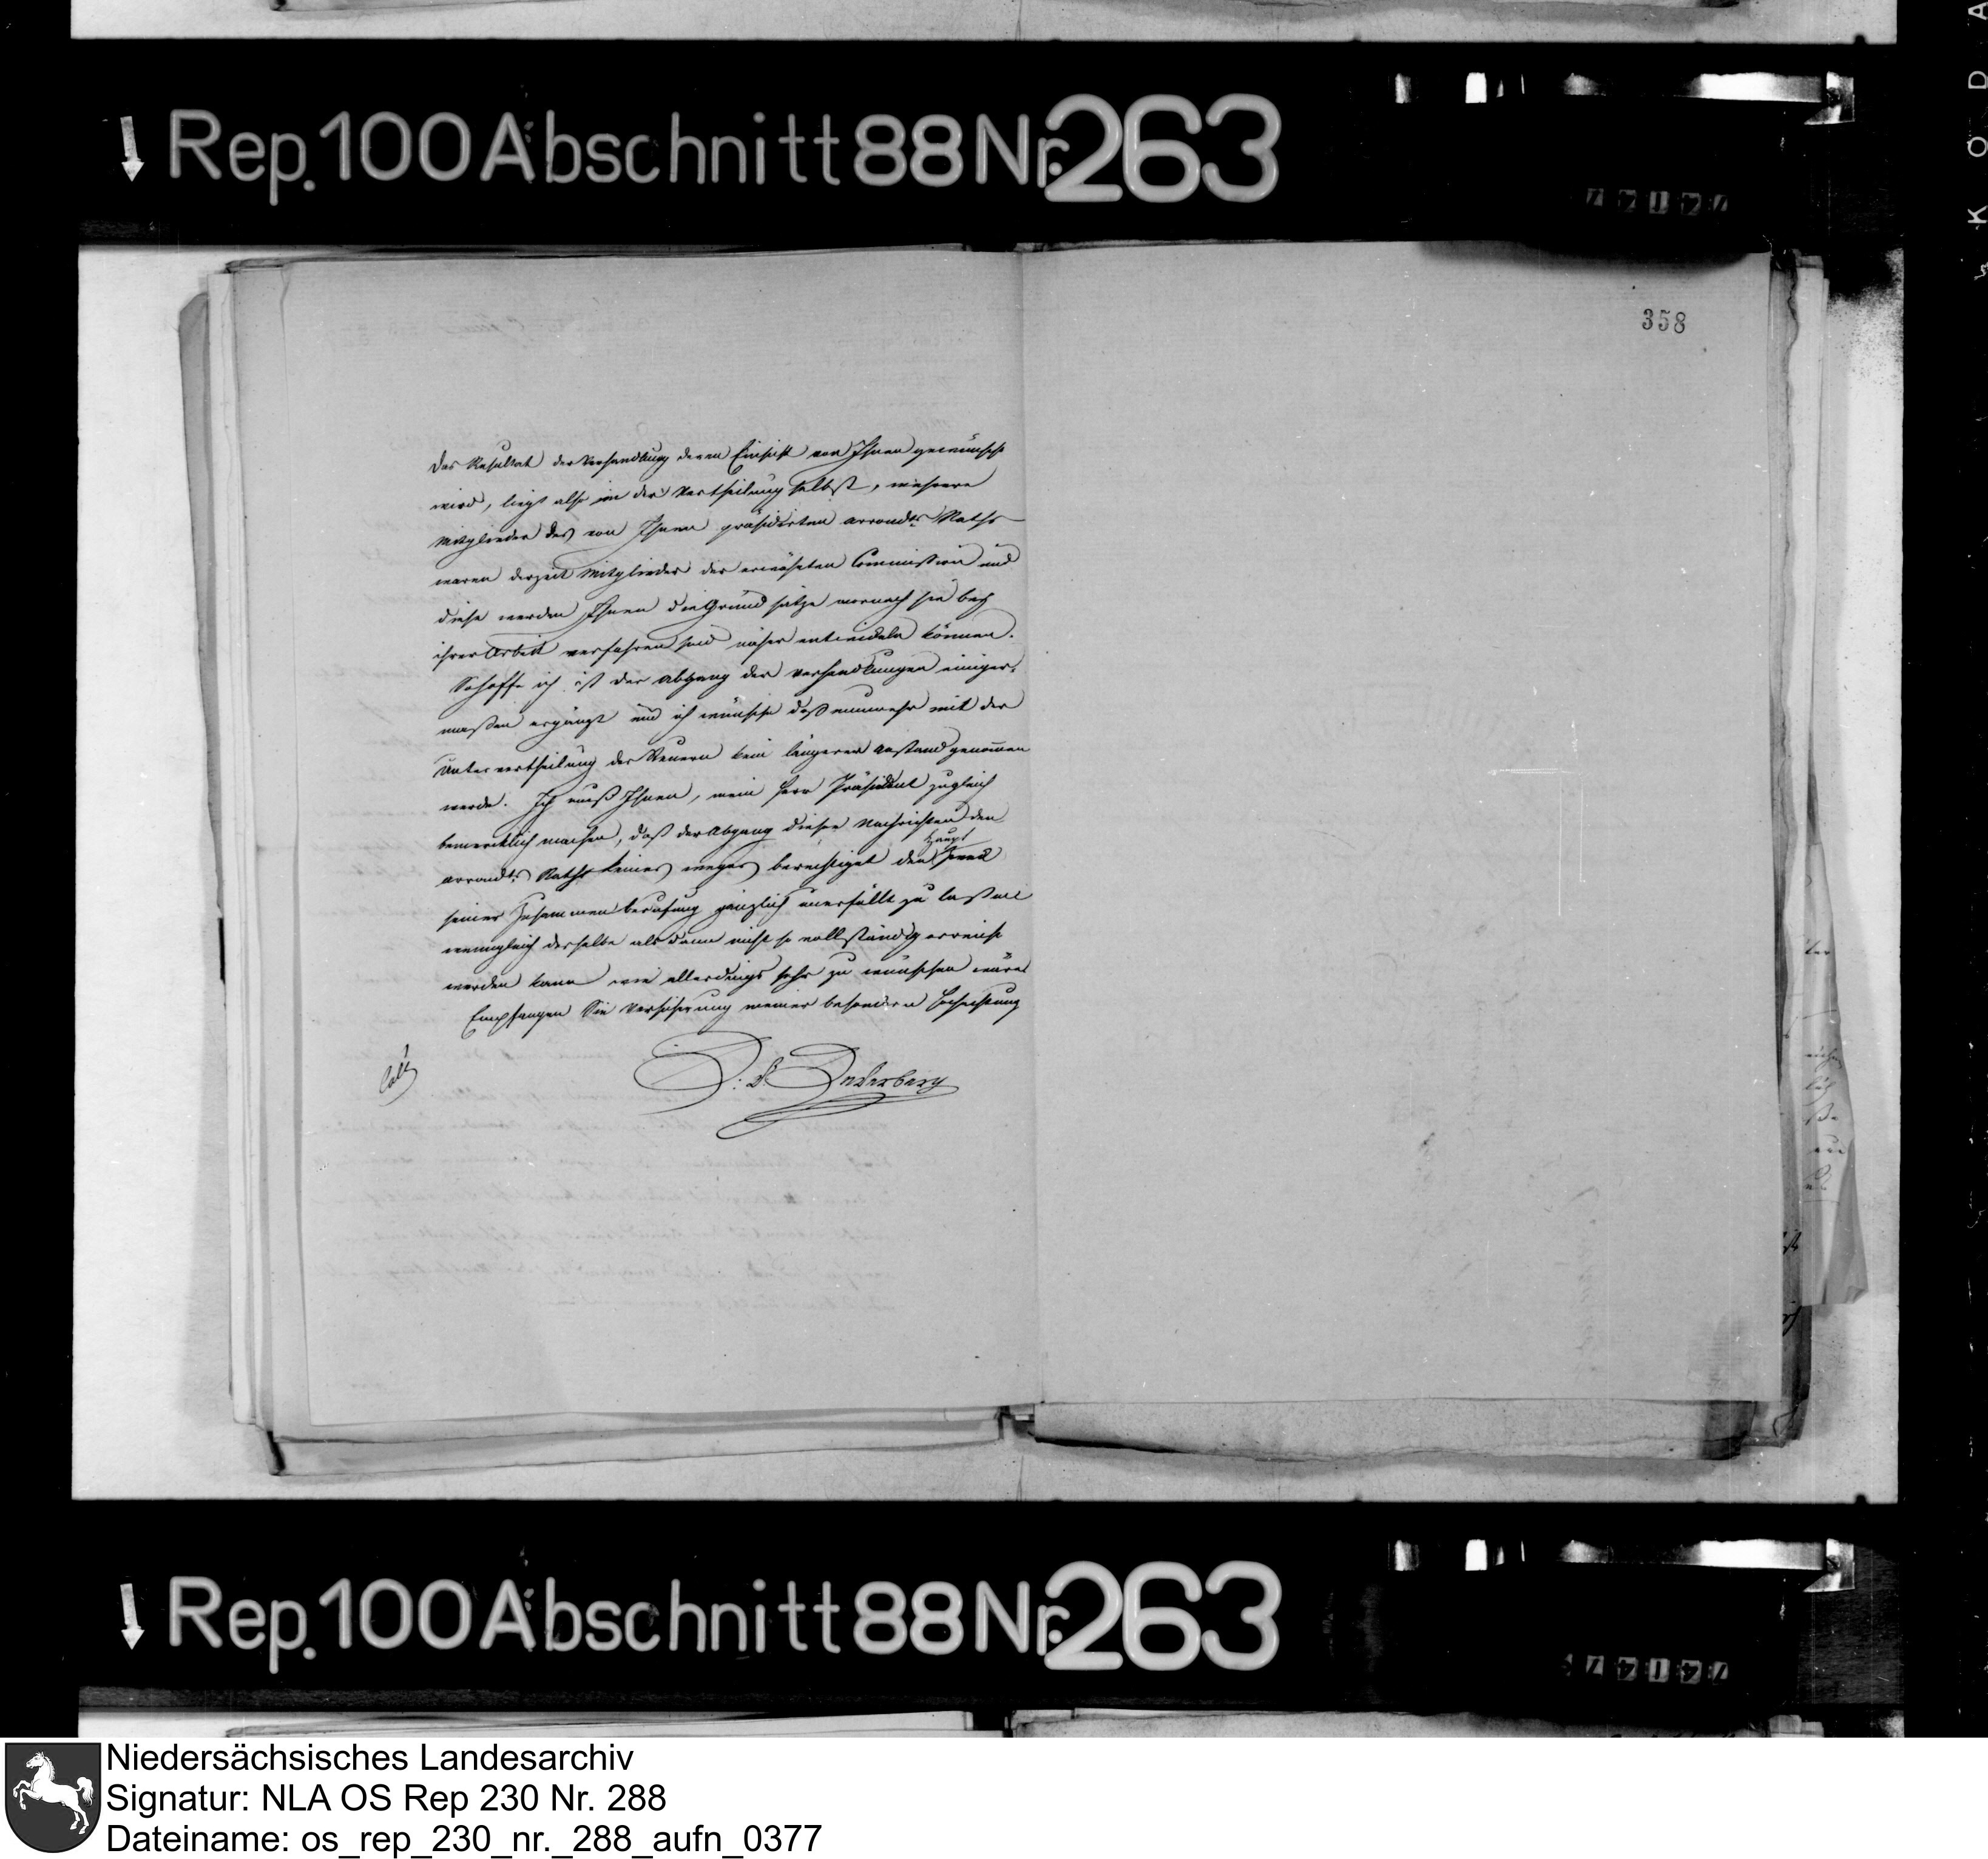 Rep. 100 Abschnitt 88 Nr. 263
358
Das Resultat der Verhandlung deren Einsicht von Ihnen gewünscht
wird, liegt also in der Vertheilung selbst, mehrere
Mitglieder des von Ihnen präsidirten arrondts Raths
waren derzeit Mitglieder der erwähnten Commission und
diese werden Ihnen die Grundsätze wornach sie bey
ihrer Arbeit verfahren sind näher entwickeln können.
So hoffe ich ist der Abgang der Verhandlungen einiger-
maßen ergänzt und ich wünsche daß nunmehr mit der
Untervertheilung der Steuern kein längerer Anstand genommen
werde. Ich muß Ihnen, mein Herr Präsident zugleich
bemerklich machen, daß der Abgang dieser Nachrichten den
arrondts Rath keines weges berechtiget den Haupt
Zweck
seiner Zusammenberufung gänzlich unerfüllt zu laßen
wenngleich derselbe als dann nicht so vollständig erreicht
werden kann wie allerdings sehr zu wünschen wäre
Empfangen Sie Versicherung meiner besondern Hochachtung
Rep. 100 Abschnitt 88 Nr. 263
Niedersächsisches Landesarchiv
Signatur: NLA OS Rep 230 Nr. 288
Dateiname: os_rep_230_nr._288_aufn_0377